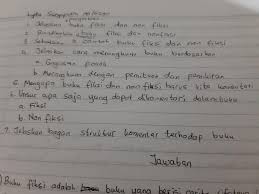 1. Jelaskan buku fiksi dan non fiksi
2. buku fiksi dan nonfiksi
3. Sebutkan 2 contoh buku fiksi dan non fiksi
4. Jelaskan cara merangkum buku berdasarkan
a. Gagasan pokok
b. Merangkum dengan pemikiran dan
5. Mengapa buku fiksi dan non fiksi harus kita komentari
6. Unsur apa saja yang dapat dikomentari dalam buku
a. fiksi
b. Non fiksi
7. Jelaskan bagian struktur komentar terhadap buku
Jawaban
1) Buku fiksi adalah buku yang berisi